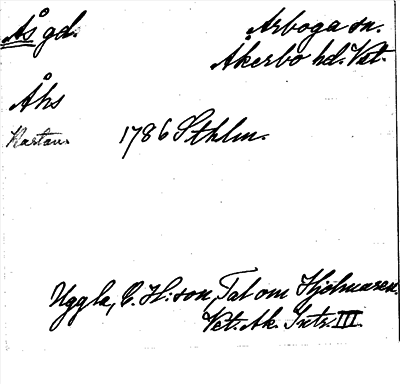 Ås gd. Arboga sn.
Åkerbo hd. Vstm.
Åhs
Kartan 1786 Sthlm.
Uggla, C. H:son, Tal om Hjelmaren.
Vet. Ak. Intr. III.